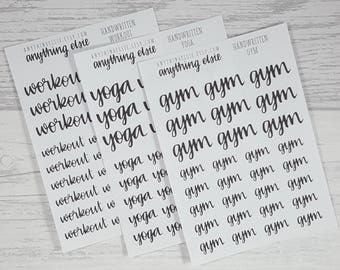 anything else
HANDWRITTEN
WORKOUT
workout
workout
workout
workout w
workout w
workout w
workout w
workout w
workout w
anything else
HANDWRITTEN
YOGA
yoga yo
yoga yo
yoga yo
yoga yo
yoga yo
yoga yo
yoga yo
yoga yo
anything else
HANDWRITTEN
GYM
gym gym gym
gym gym gym
gym gym gym
gym gym gym gym
gym gym gym gym
gym gym gym gym
gym gym gym gym
gym gym gym gym